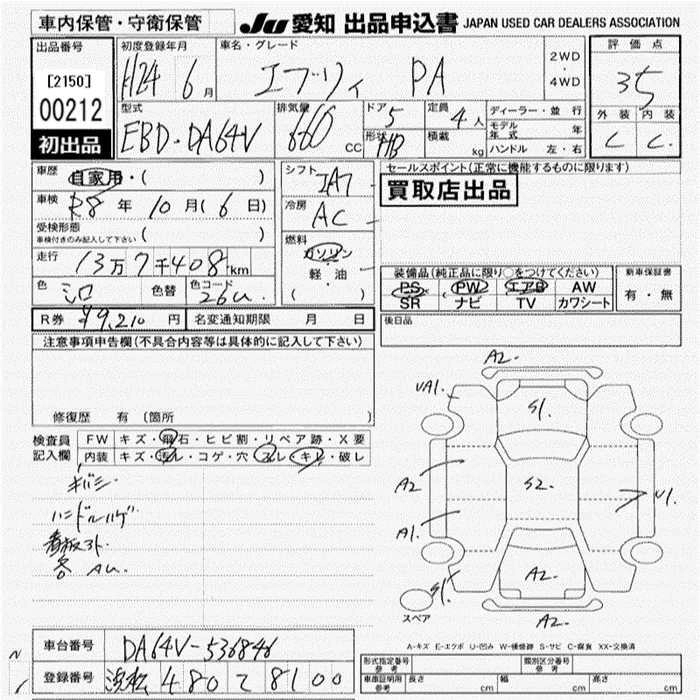 車内保管・守衛保管
JU 愛知 出品申込書 JAPAN USED CAR DEALERS ASSOCIATION
出品番号
[2150]
00212
初出品
初度登録年月
H24 6月
車名・グレード
エブリィ PA
2WD
・
4WD
評価点
3.5
外装 内装
C C
型式
EBD-DA64V
排気量
660 CC
ドア 5
形状 HB
定員 4人
積載 kg
ディーラー・並行
モデル年式 年
ハンドル 左・右
車歴 自家用・( )
車検 R8年10月(6日)
受検形態
車検付きのみ記入して下さい ( )
走行 13万7千408km
色 シロ 色替 色コード 26U
R券 ¥9,210円 名変通知期限 月 日
シフト
冷房 AC
燃料
ガソリン
軽・油
( )
セールスポイント(正常に機能するものに限ります)
買取店出品
装備品(純正品に限り○をつけてください)
PS PW エアB AW
SR ナビ TV カワシート
新車保証書
有・無
後日品
注意事項申告欄(不具合内容等は具体的に記入して下さい)
修復歴 有 〔箇所
検査員記入欄
FW キズ・飛石・ヒビ割・リペア跡・X要
内装 キズ・汚レ・コゲ・穴・スレ・キレ・破レ
ハンドルハゲ
各 AU.
A2.
UA1.
S1.
A2
S2.
A1.
U1.
S1.
A2.
A2.
スペア
A-キズ E-エクボ U-凹み W-補修跡 S-サビ C-腐食 XX-交換済
車台番号 DA64V-536846
登録番号 浜松 480 て 8100
形式指定番号 参考
類別区分番号 参考
車庫証明用 参考 長さ cm 幅 cm 高さ cm